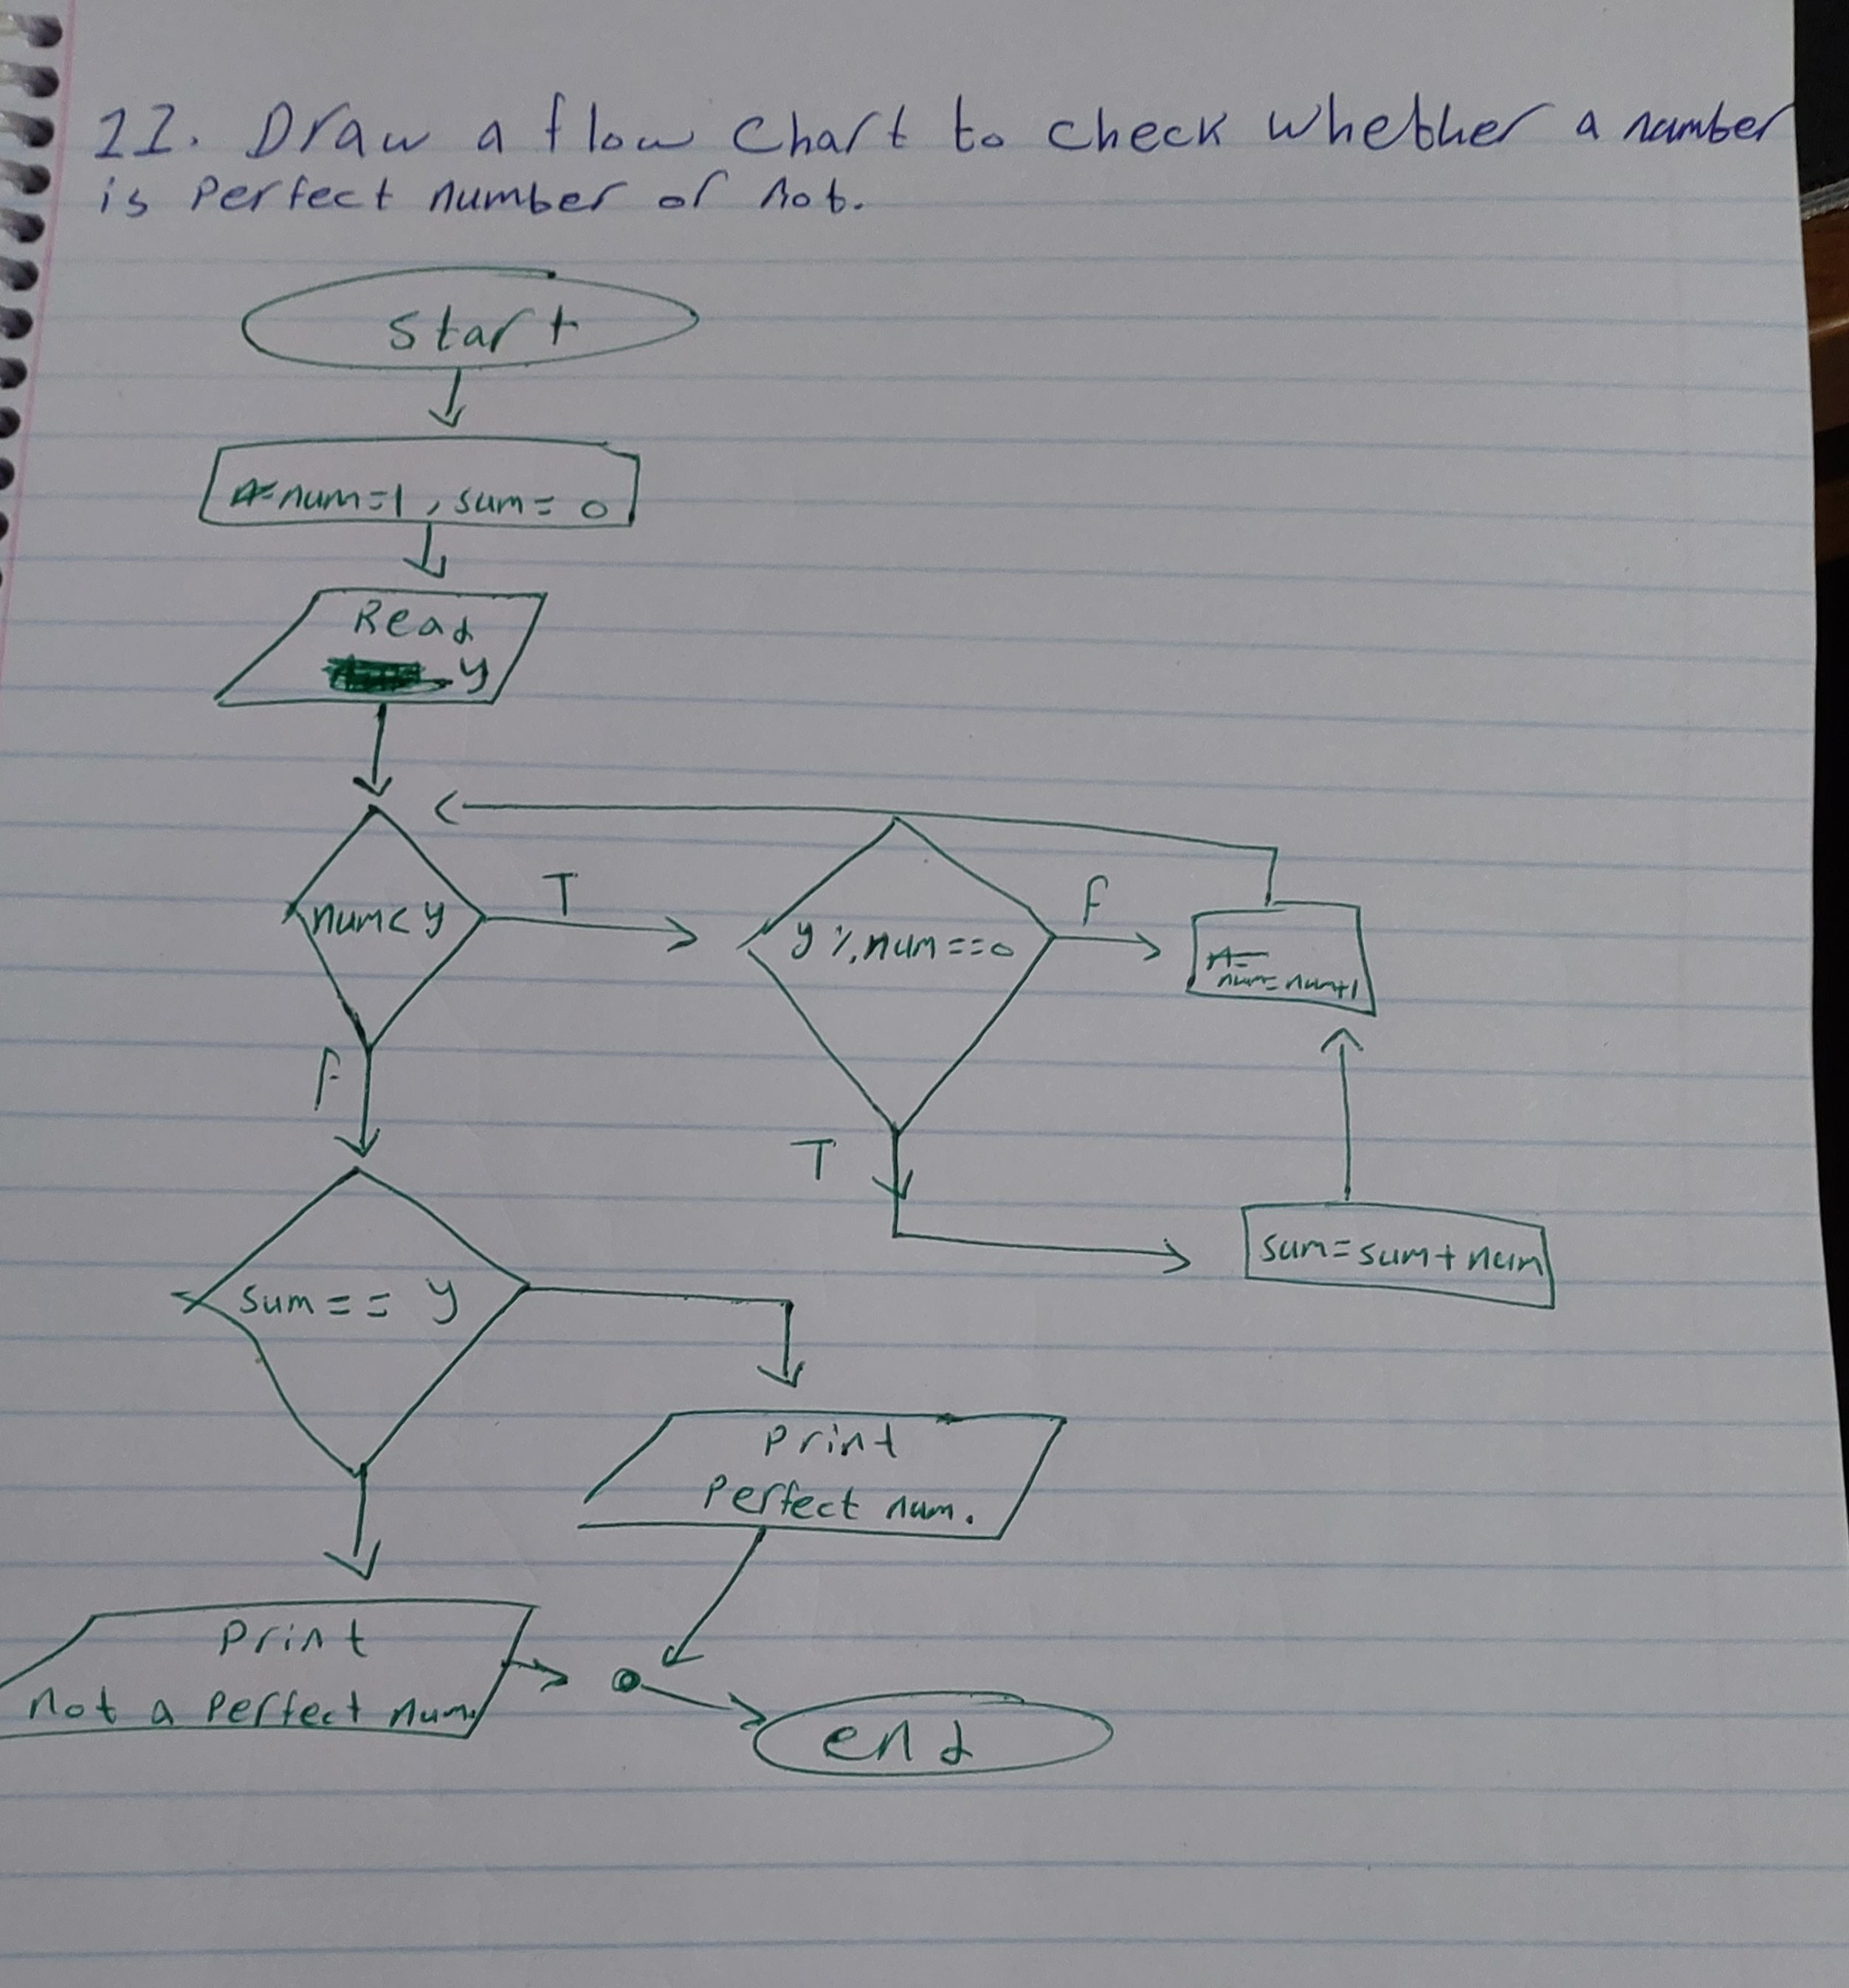 11. Draw a flow chart to check whether a number
is perfect number or not.
start
num=1, sum= 0
Read
y
num< y
T
y % num ==0
F
num= num+1
F
T
sum= sum+ num
sum== y
print
perfect num.
print
not a perfect num.
end